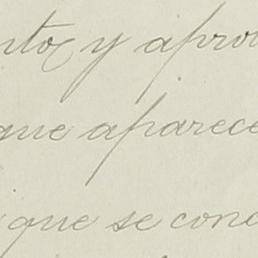 ntos y apro
que aparece
que se conc